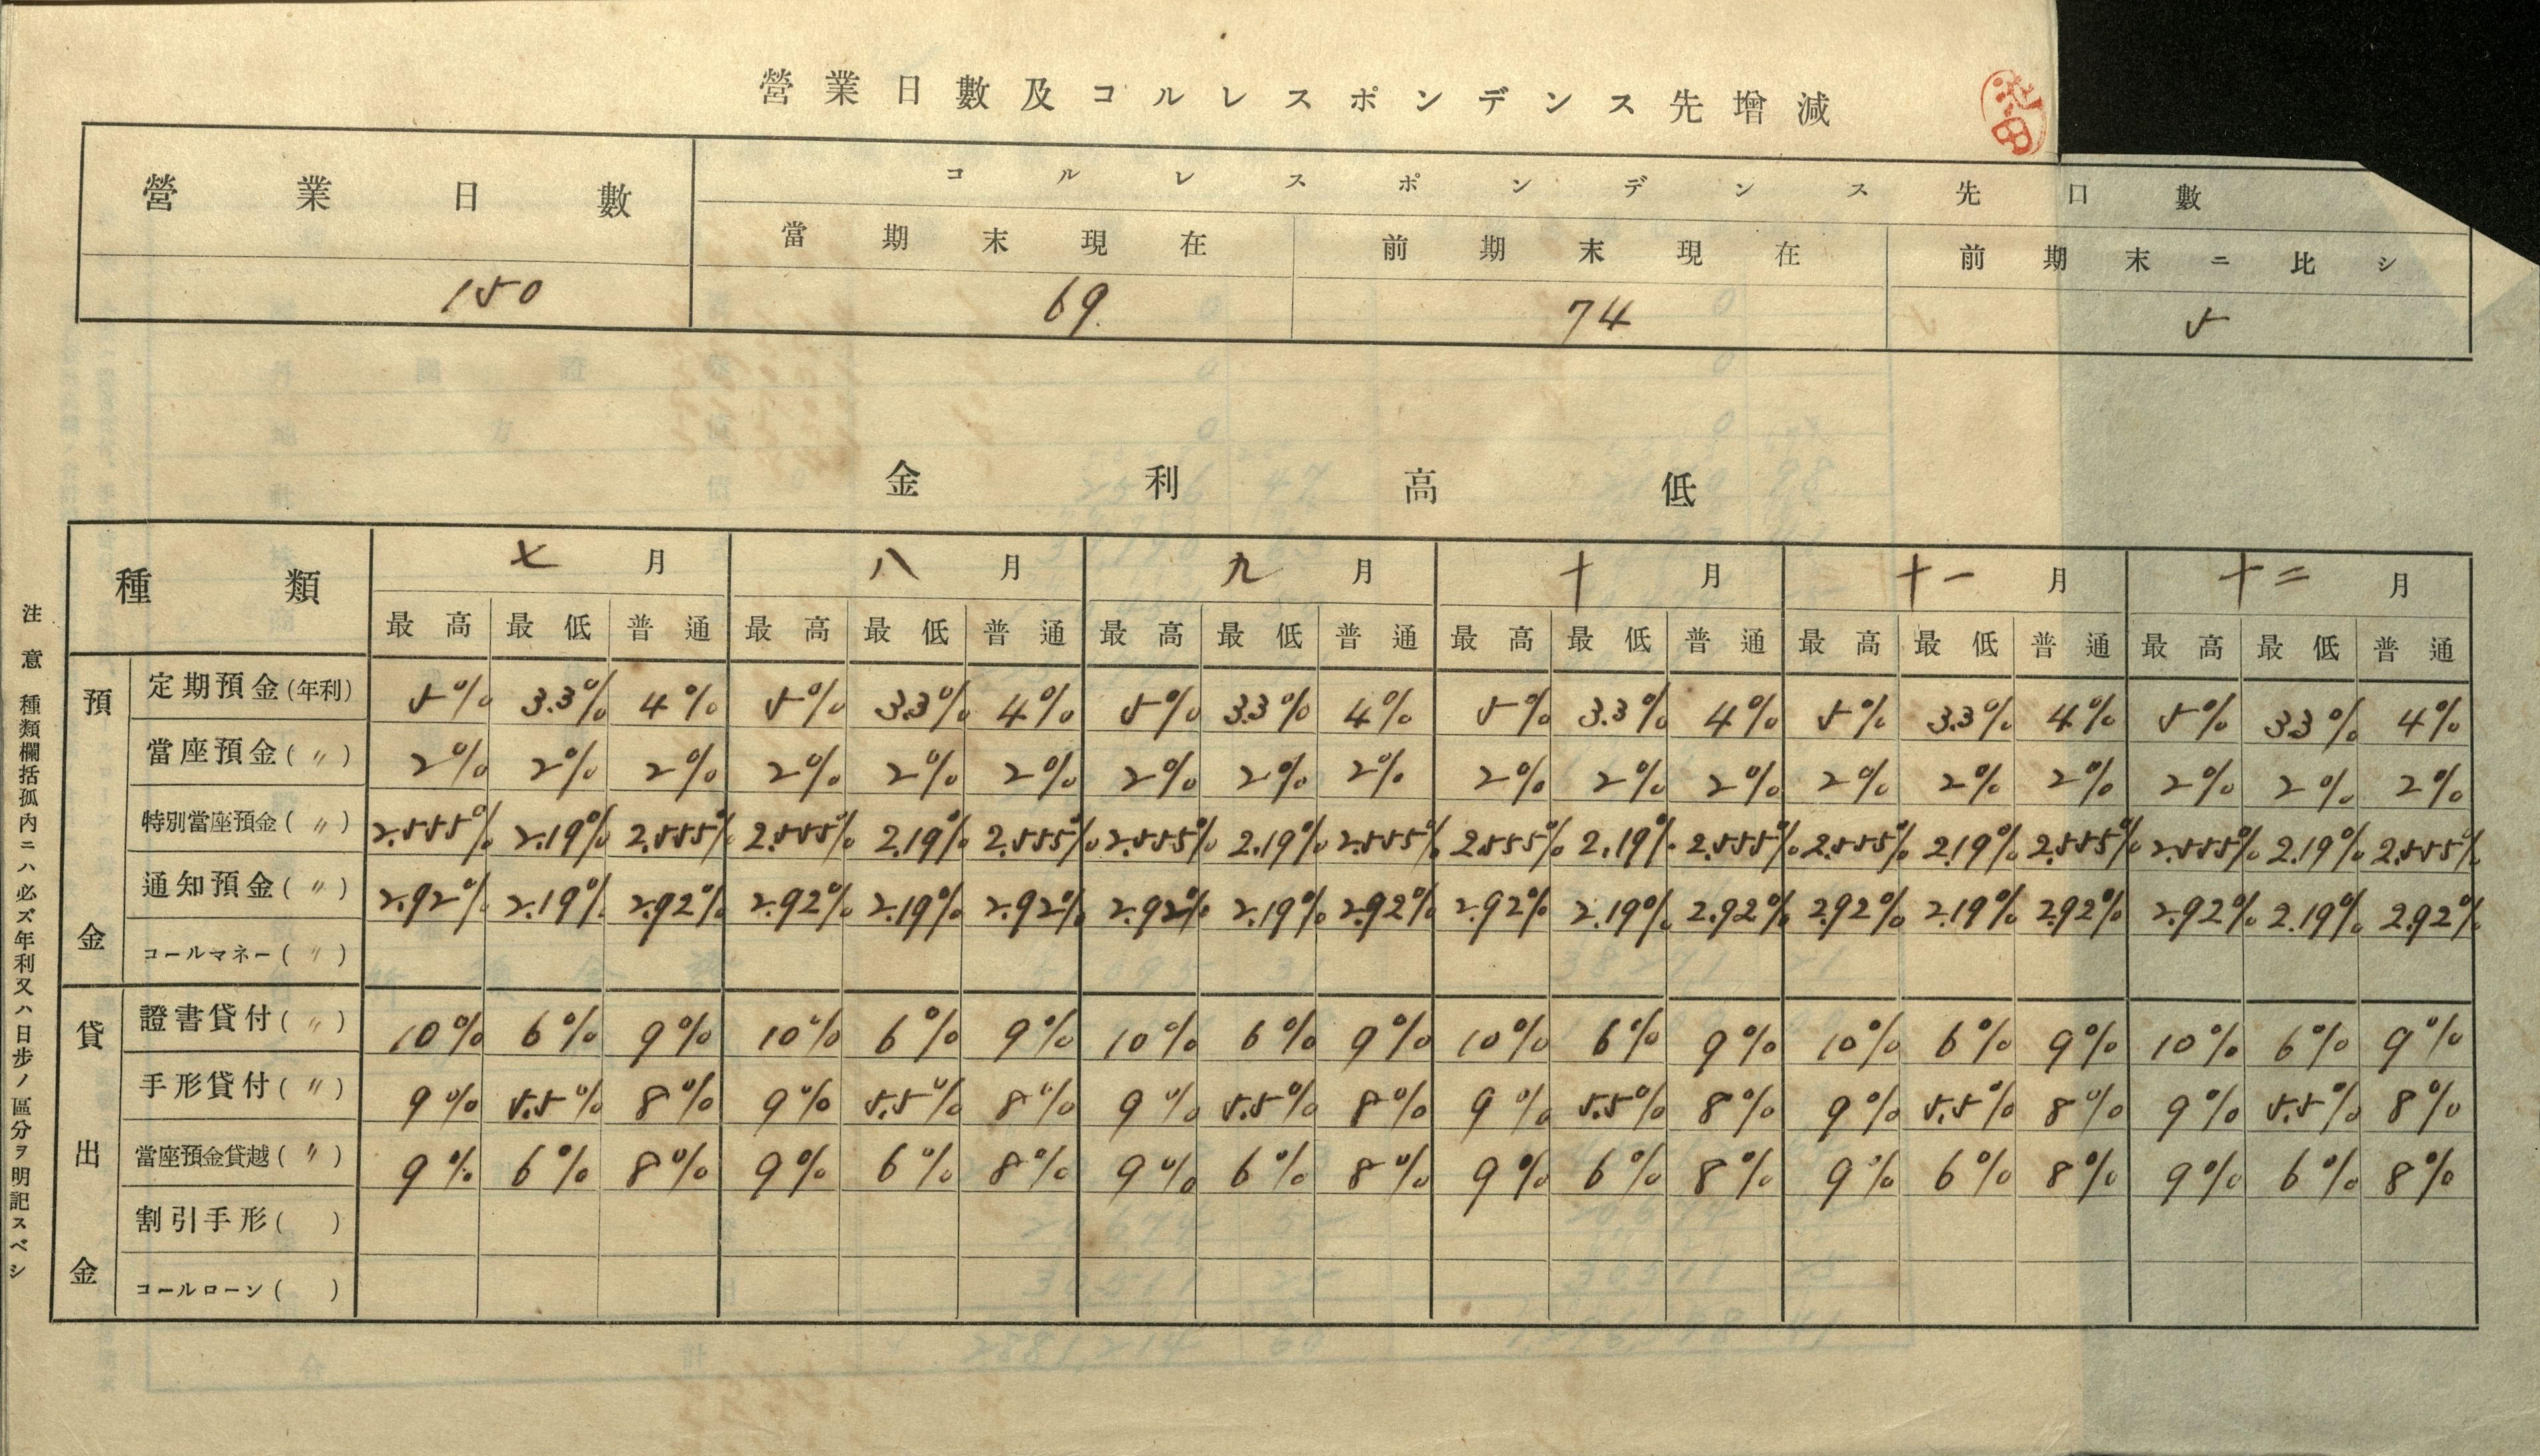 營業日數及コルレスポンデンス先增減
池田
營業日數 コルレスポンデンス先口數
當期末現在 前期末現在 前期末ニ比シ
150 69. 74 5
金利高低
種類 七月 八月 九月 十月 十一月 十二月
最高 最低 普通 最高 最低 普通 最高 最低 普通 最高 最低 普通 最高 最低 普通 最高 最低 普通
預金
定期預金(年利) 5% 3.3% 4% 5% 3.3% 4% 5% 3.3% 4% 5% 3.3% 4% 5% 3.3% 4% 5% 3.3% 4%
當座預金(〃) 2% 2% 2% 2% 2% 2% 2% 2% 2% 2% 2% 2% 2% 2% 2% 2% 2% 2%
特別當座預金(〃) 2.555% 2.19% 2.555% 2.555% 2.19% 2.555% 2.555% 2.19% 2.555% 2.555% 2.19% 2.555% 2.555% 2.19% 2.555% 2.555% 2.19% 2.555%
通知預金(〃) 2.92% 2.19% 2.92% 2.92% 2.19% 2.92% 2.92% 2.19% 2.92% 2.92% 2.19% 2.92% 2.92% 2.19% 2.92% 2.92% 2.19% 2.92%
コールマネー(〃)
貸出金
證書貸付(〃) 10% 6% 9% 10% 6% 9% 10% 6% 9% 10% 6% 9% 10% 6% 9% 10% 6% 9%
手形貸付(〃) 9% 5.5% 8% 9% 5.5% 8% 9% 5.5% 8% 9% 5.5% 8% 9% 5.5% 8% 9% 5.5% 8%
當座預金貸越(〃) 9% 6% 8% 9% 6% 8% 9% 6% 8% 9% 6% 8% 9% 6% 8% 9% 6% 8%
割引手形( )
コールローン( )
注意 種類欄括孤內ニハ必ズ年利又ハ日步ノ區分ヲ明記スベシ